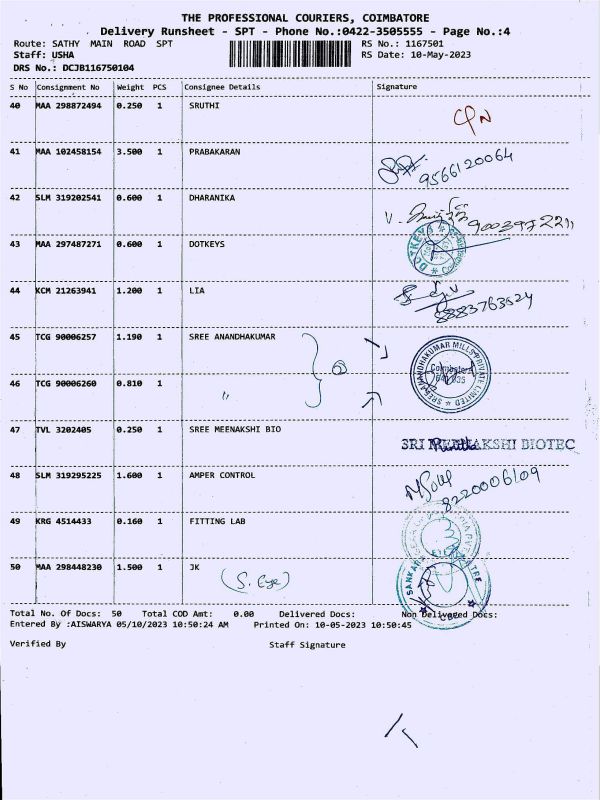 THE PROFESSIONAL COURIERS, COIMBATORE
Delivery Runsheet - SPT - Phone No.:0422-3505555 - Page No.:4
Route: SATHY MAIN ROAD SPT
RS No.: 1167501
Staff: USHA
RS Date: 10-May-2023
DRS No.: DCJB116750104
S No Consignment No Weight PCS Consignee Details Signature
40 MAA 298872494 0.250 1 SRUTHI
41 MAA 102458154 3.500 1 PRABAKARAN
9566120064
42 SLM 319202541 0.600 1 DHARANIKA
9003972211
43 MAA 297487271 0.600 1 DOTKEYS
44 KCM 21263941 1.200 1 LIA
8883763624
45 TCG 90006257 1.190 1 SREE ANANDHAKUMAR
SREE ANANDHAKUMAR MILLS PRIVATE LIMITED
46 TCG 90006260 0.810 1 "
47 TVL 3202405 0.250 1 SREE MEENAKSHI BIO
SRI MEENAKSHI BIOTEC
48 SLM 319295225 1.600 1 AMPER CONTROL
8220006109
49 KRG 4514433 0.160 1 FITTING LAB
50 MAA 298448230 1.500 1 JK
(S. Eye)
Total No. Of Docs: 50 Total COD Amt: 0.00 Delivered Docs: Non Delivered Docs:
Entered By :AISWARYA 05/10/2023 10:50:24 AM Printed On: 10-05-2023 10:50:45
Verified By Staff Signature